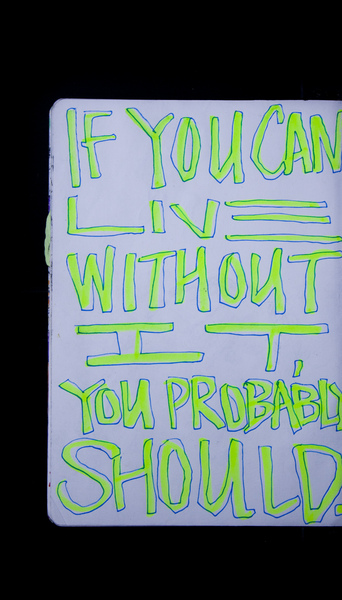 IF YOU CAN
LIVE
WITHOUT
IT,
YOU PROBABLY
SHOULD.